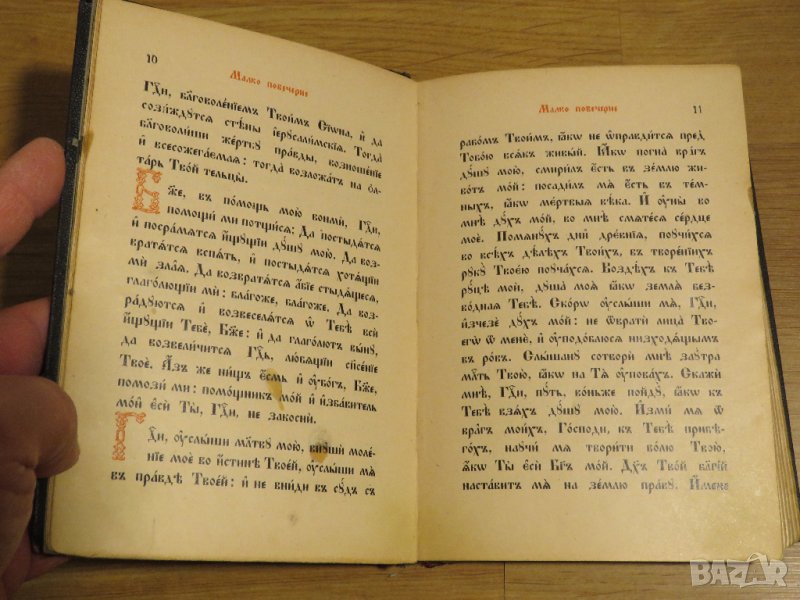 10
Малко повечерие
Гд҃и, бл҃говоле́нїемъ Твои́мъ Сїѡ́на, и҆ да
сози́ждутсѧ стѣ́ны і҆ерусали́мскїѧ. Тогда̀
бл҃говоли́ши же́ртву пра́вды, возноше́нїе
и҆ всесожега́емаѧ: тогда̀ возложа́тъ на ѻ҆л-
та́рь Тво́й тельцы̀.
Бж҃е, въ по́мощь мою̀ вонмѝ, Гд҃и,
помощи́ ми потщи́сѧ: Да постыдѧ́тсѧ
и҆ посра́мѧтсѧ и҆́щущїи ду́шу мою̀. Да воз-
вратѧ́тсѧ вспѧ́ть, и҆ постыдѧ́тсѧ хотѧ́щїи
мѝ зла́ѧ. Да возвратѧ́тсѧ а҆́бїе стыдѧ́щесѧ,
глаго́лющїи мѝ: бла́гоже, бла́гоже. Да воз-
ра́дуютсѧ и҆ возвеселѧ́тсѧ ѡ҆ Тебѣ̀ всѝ
и҆́щущїи Тебѐ, Бж҃е: и҆ да глаго́лютъ вы́ну,
да возвели́читсѧ Гд҃ь, лю́бѧщїи спⷭ҇е́нїе
Твоѐ. А҆́зъ же ни́щъ є҆́смь и҆ ᲂу҆бо́гъ, Бж҃е,
помози́ ми: помо́щникъ мо́й и҆ и҆зба́витель
мо́й є҆сѝ Ты̀, Гд҃и, не закоснѝ.
Гд҃и, ᲂу҆слы́ши мл҃тву мою̀, внушѝ моле́-
нїе моѐ во и҆́стинѣ Твое́й, ᲂу҆слы́ши мѧ̀
въ пра́вдѣ Твое́й: и҆ не вни́ди въ су́дъ съ
Малко повечерие
11
рабо́мъ Твои́мъ, ꙗ҆́кѡ не ѡ҆правди́тсѧ пред̾
Тобо́ю всѧ́къ живы́й. Ꙗ҆́кѡ погна̀ вра́гъ
ду́шу мою̀, смири́лъ є҆́сть въ зе́млю жи-
во́тъ мо́й: посади́лъ мѧ̀ є҆́сть въ те́м-
ныхъ, ꙗ҆́кѡ ме́ртвыѧ вѣ́ка. И҆ ᲂу҆ны̀ во
мнѣ̀ ду́хъ мо́й, во мнѣ̀ смѧте́сѧ се́рдце
моѐ. Помѧну́хъ дни̑ дре́внїѧ, поучи́хсѧ
во всѣ́хъ дѣ́лѣхъ Твои́хъ, въ творе́нїихъ
руку̀ Твоє́ю поуча́хсѧ. Воздѣ́хъ къ Тебѣ̀
ру́цѣ моѝ, душа̀ моѧ̀ ꙗ҆́кѡ землѧ̀ без-
во́днаѧ Тебѣ̀. Ско́рѡ ᲂу҆слы́ши мѧ̀, Гд҃и,
и҆счезѐ ду́хъ мо́й: не ѿвратѝ лица̀ Твое-
гѡ̀ ѿ менѐ, и҆ ᲂу҆подо́блюсѧ низходѧ́щымъ
въ ро́въ. Слы́шану сотворѝ мнѣ̀ зау́тра
мл҃ть Твою̀, ꙗ҆́кѡ на Тѧ̀ ᲂу҆пова́хъ. Скажѝ
мнѣ̀, Гд҃и, пу́ть, во́ньже пойду̀, ꙗ҆́кѡ къ
Тебѣ̀ взѧ́хъ ду́шу мою̀. И҆змѝ мѧ̀ ѿ
вра́гъ мои́хъ, Го́споди, къ Тебѣ̀ прибѣ-
го́хъ, научѝ мѧ̀ твори́ти во́лю Твою̀,
ꙗ҆́кѡ Ты̀ є҆сѝ Бг҃ъ мо́й. Дх҃ъ Тво́й бл҃гі́й
наста́витъ мѧ̀ на зе́млю пра́ву. И҆́мене
BAZAR